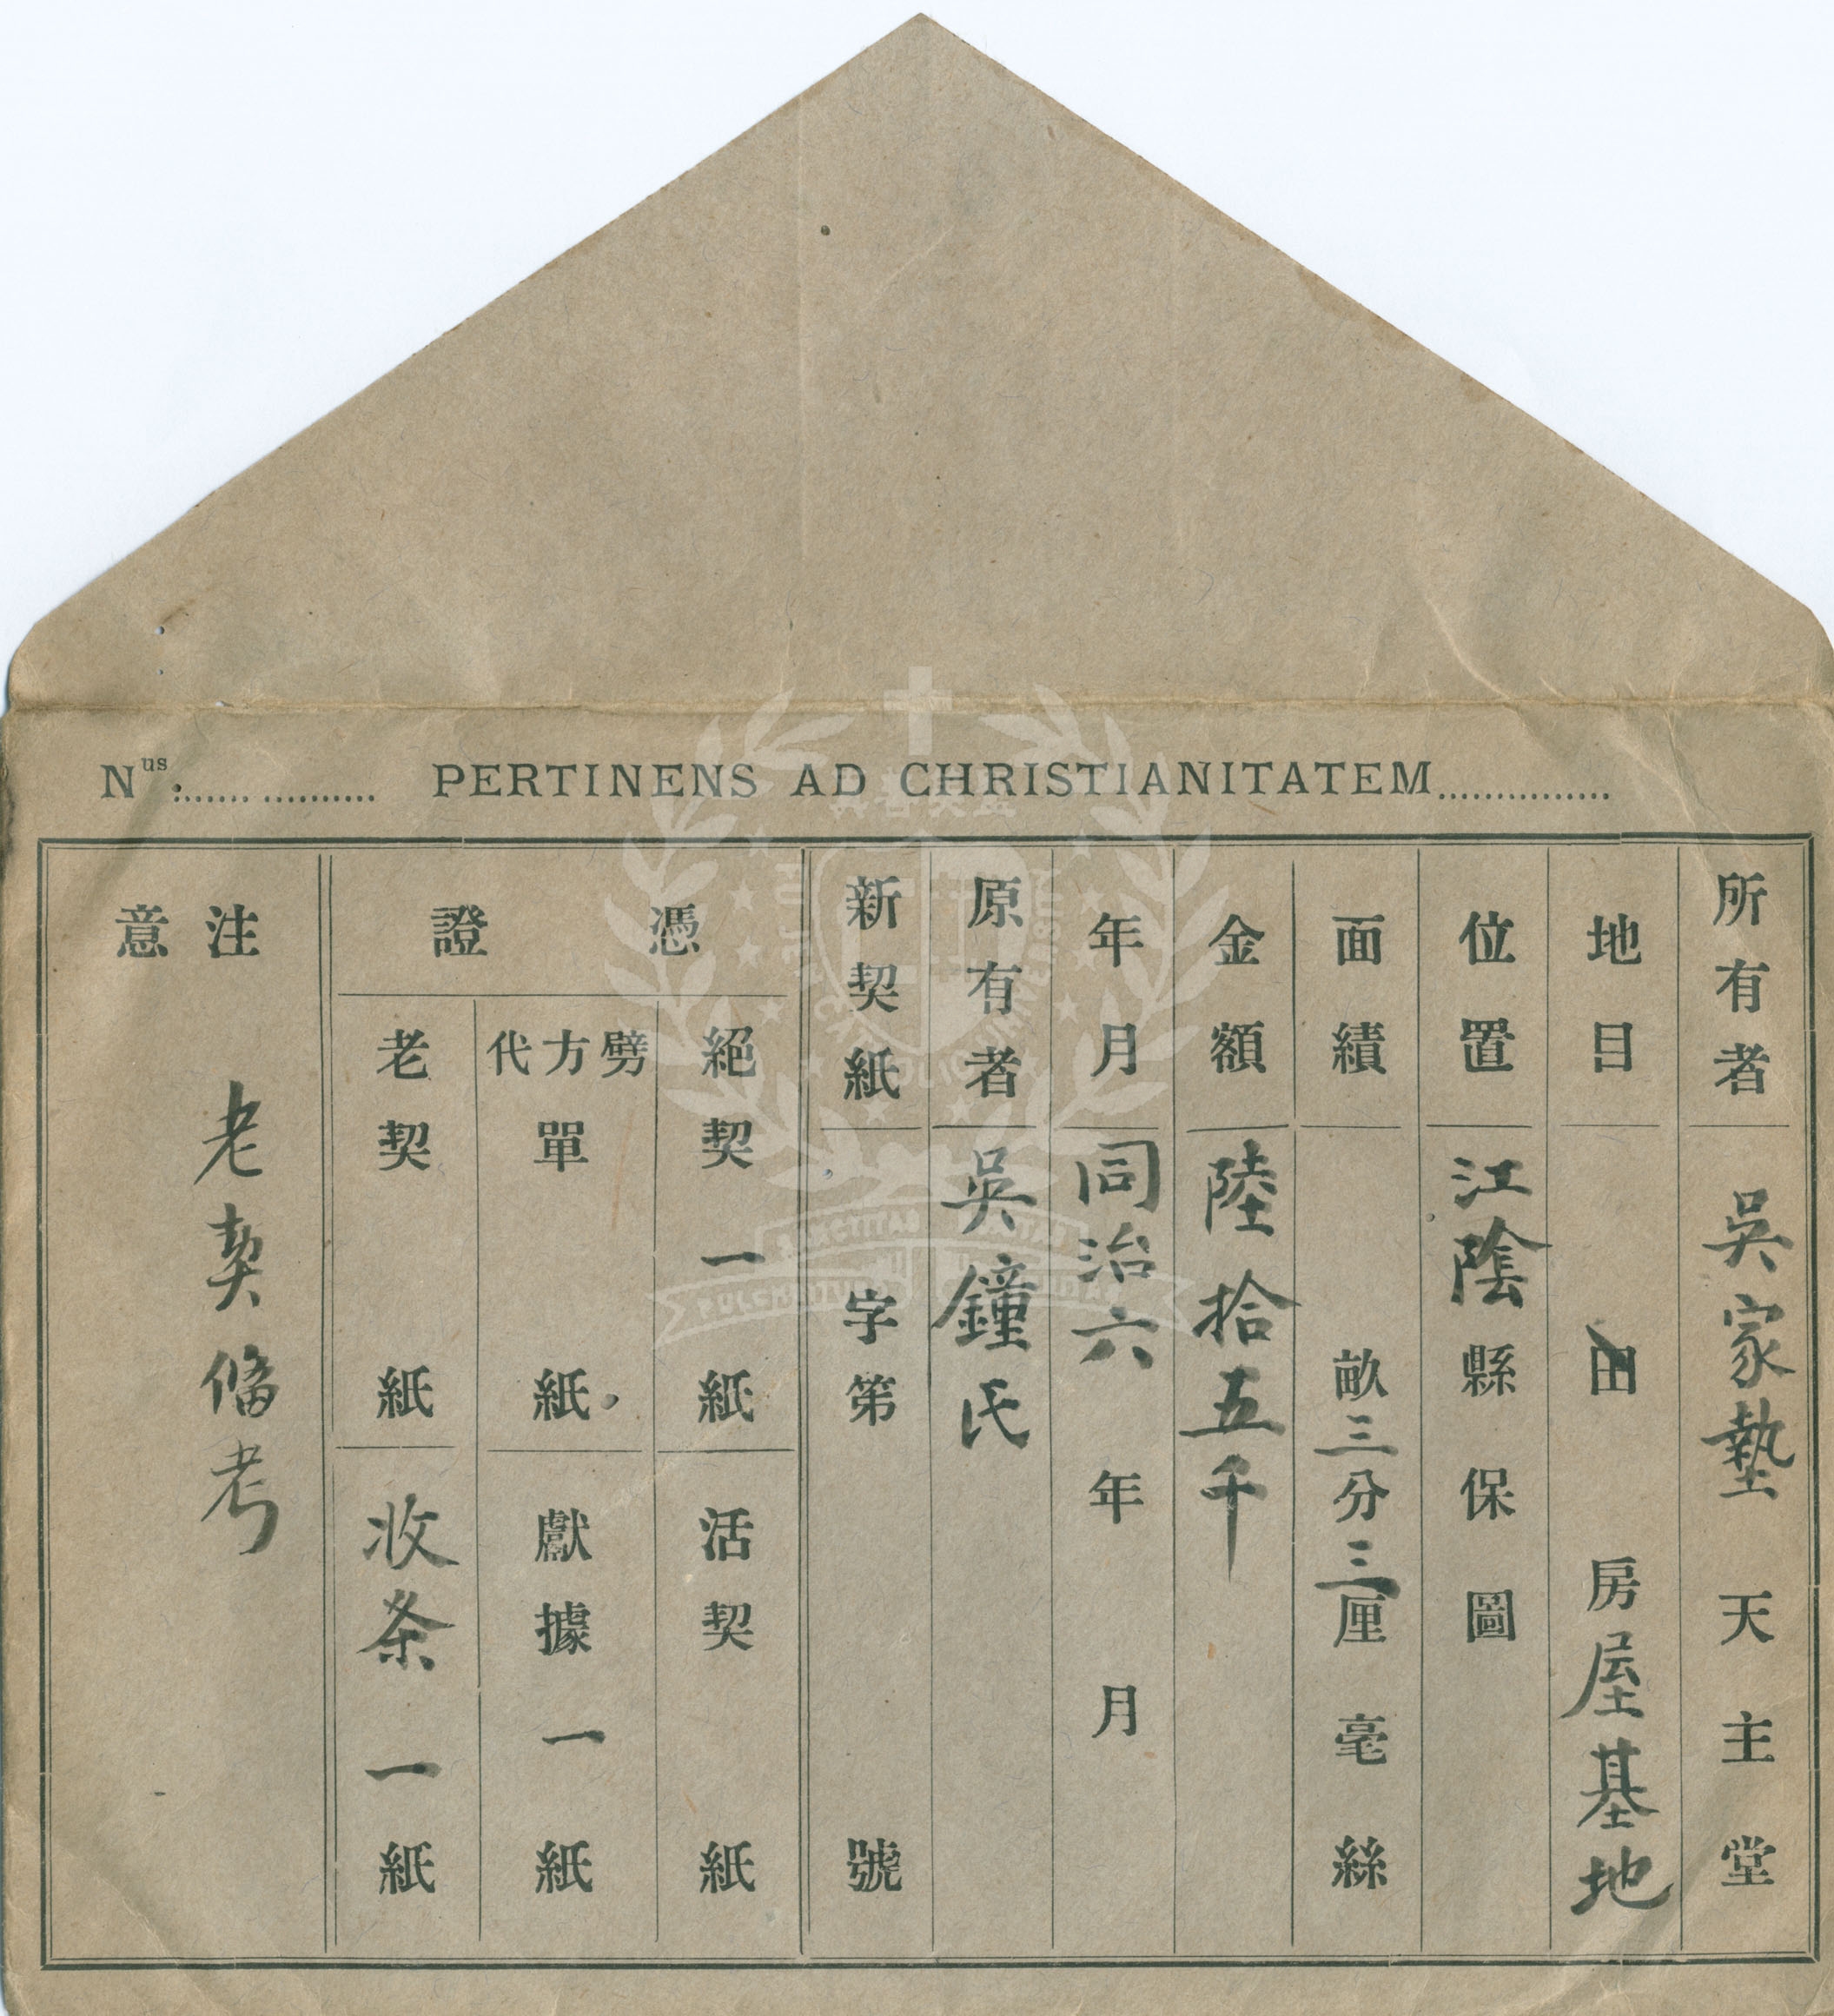 Nus. PERTINENS AD CHRISTIANITATEM
所有者 吳家墊天主堂
地目 田 房屋基地
位置 江陰縣保圖
面績 畝三分三厘毫絲
金額 陸拾五千
年月 同治六年月
原有者 吳鐘氏
新契紙 字第號
憑證
絕契一紙
活契紙
劈方代單紙
獻據一紙
老契紙
收条一紙
注意 老契俻考